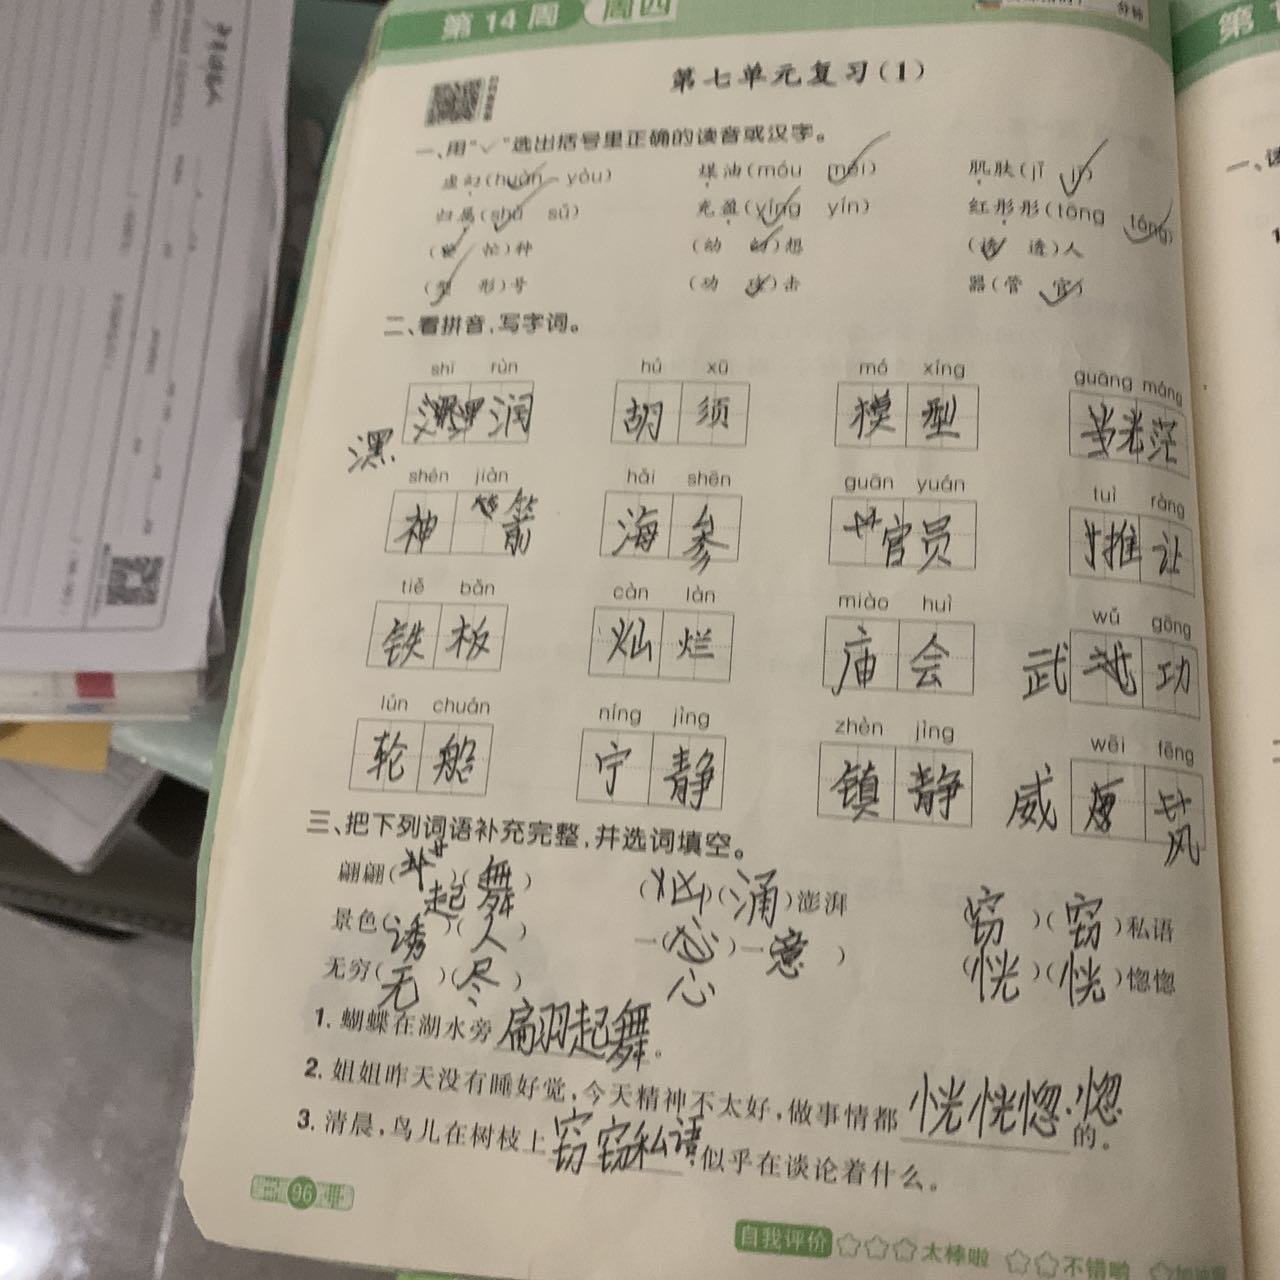 第14周 周四
分钟
第七单元复习(1)
一、用"✓"选出括号里正确的读音或汉字。
虚幻(huàn yòu) 煤油(móu méi) 肌肤(jǐ jī)
归属(shǔ sǔ) 充盈(yíng yín) 红彤彤(tōng tóng)
忙)种 (幼 幻)想 (诱 透)人
(型 形)号 (功 攻)击 器(管 官)
二、看拼音,写字词。
shī rùn hú xū mó xíng guāng máng
润 胡须 模型 光茫
shén jiàn hǎi shēn guān yuán tuì ràng
神箭 海参 官员 推让
tiě bǎn càn làn miào huì wǔ gōng
铁板 灿烂 庙会 武功
lún chuán níng jìng zhèn jìng wēi fēng
轮船 宁静 镇静 威风
三、把下列词语补充完整,并选词填空。
翩翩(起)(舞) (汹)(涌)澎湃 (窃)(窃)私语
景色(诱)(人) 一(心)一(意) (恍)(恍)惚惚
无穷(无)(尽)
1. 蝴蝶在湖水旁扁羽起舞。
2. 姐姐昨天没有睡好觉,今天精神不太好,做事情都恍恍惚惚的。
3. 清晨,鸟儿在树枝上窃窃私语,似乎在谈论着什么。
96
自我评价 ☆☆☆太棒啦 ☆☆不错哟 ☆加油